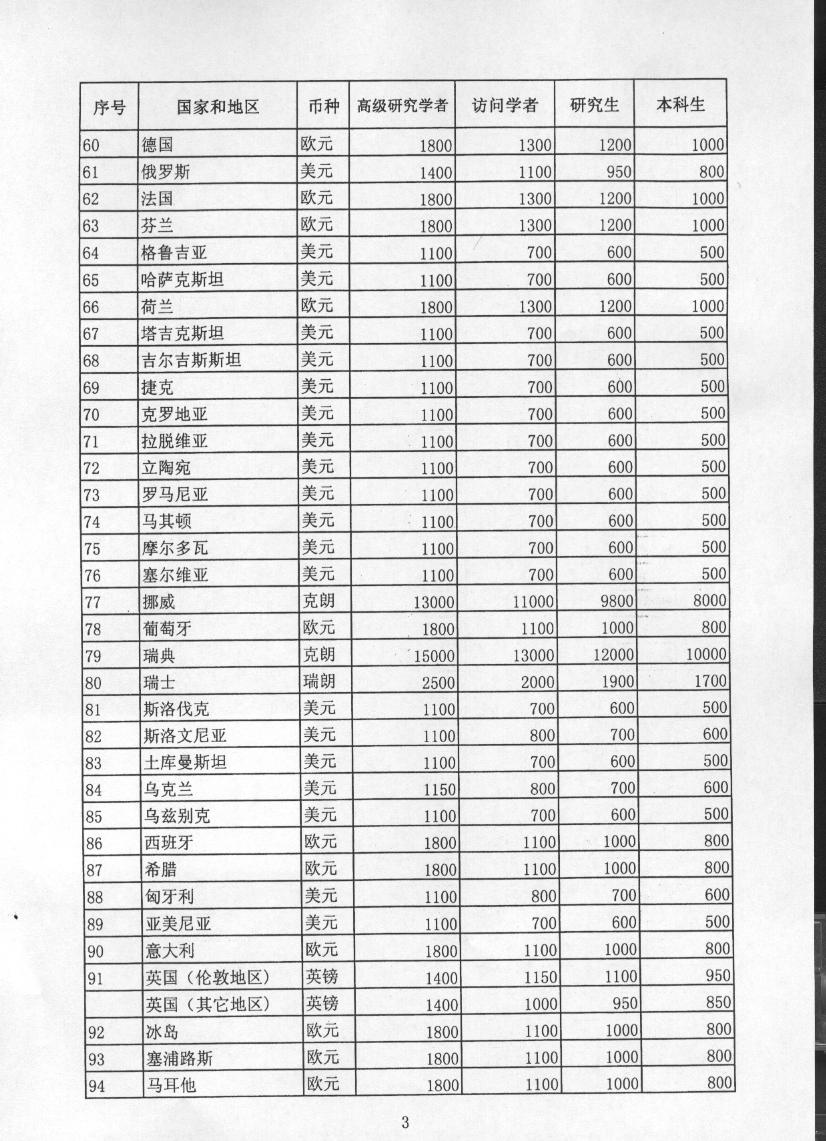 序号 国家和地区 币种 高级研究学者 访问学者 研究生 本科生
60 德国 欧元 1800 1300 1200 1000
61 俄罗斯 美元 1400 1100 950 800
62 法国 欧元 1800 1300 1200 1000
63 芬兰 欧元 1800 1300 1200 1000
64 格鲁吉亚 美元 1100 700 600 500
65 哈萨克斯坦 美元 1100 700 600 500
66 荷兰 欧元 1800 1300 1200 1000
67 塔吉克斯坦 美元 1100 700 600 500
68 吉尔吉斯斯坦 美元 1100 700 600 500
69 捷克 美元 1100 700 600 500
70 克罗地亚 美元 1100 700 600 500
71 拉脱维亚 美元 1100 700 600 500
72 立陶宛 美元 1100 700 600 500
73 罗马尼亚 美元 1100 700 600 500
74 马其顿 美元 1100 700 600 500
75 摩尔多瓦 美元 1100 700 600 500
76 塞尔维亚 美元 1100 700 600 500
77 挪威 克朗 13000 11000 9800 8000
78 葡萄牙 欧元 1800 1100 1000 800
79 瑞典 克朗 15000 13000 12000 10000
80 瑞士 瑞朗 2500 2000 1900 1700
81 斯洛伐克 美元 1100 700 600 500
82 斯洛文尼亚 美元 1100 800 700 600
83 土库曼斯坦 美元 1100 700 600 500
84 乌克兰 美元 1150 800 700 600
85 乌兹别克 美元 1100 700 600 500
86 西班牙 欧元 1800 1100 1000 800
87 希腊 欧元 1800 1100 1000 800
88 匈牙利 美元 1100 800 700 600
89 亚美尼亚 美元 1100 700 600 500
90 意大利 欧元 1800 1100 1000 800
91 英国（伦敦地区） 英镑 1400 1150 1100 950
英国（其它地区） 英镑 1400 1000 950 850
92 冰岛 欧元 1800 1100 1000 800
93 塞浦路斯 欧元 1800 1100 1000 800
94 马耳他 欧元 1800 1100 1000 800
3